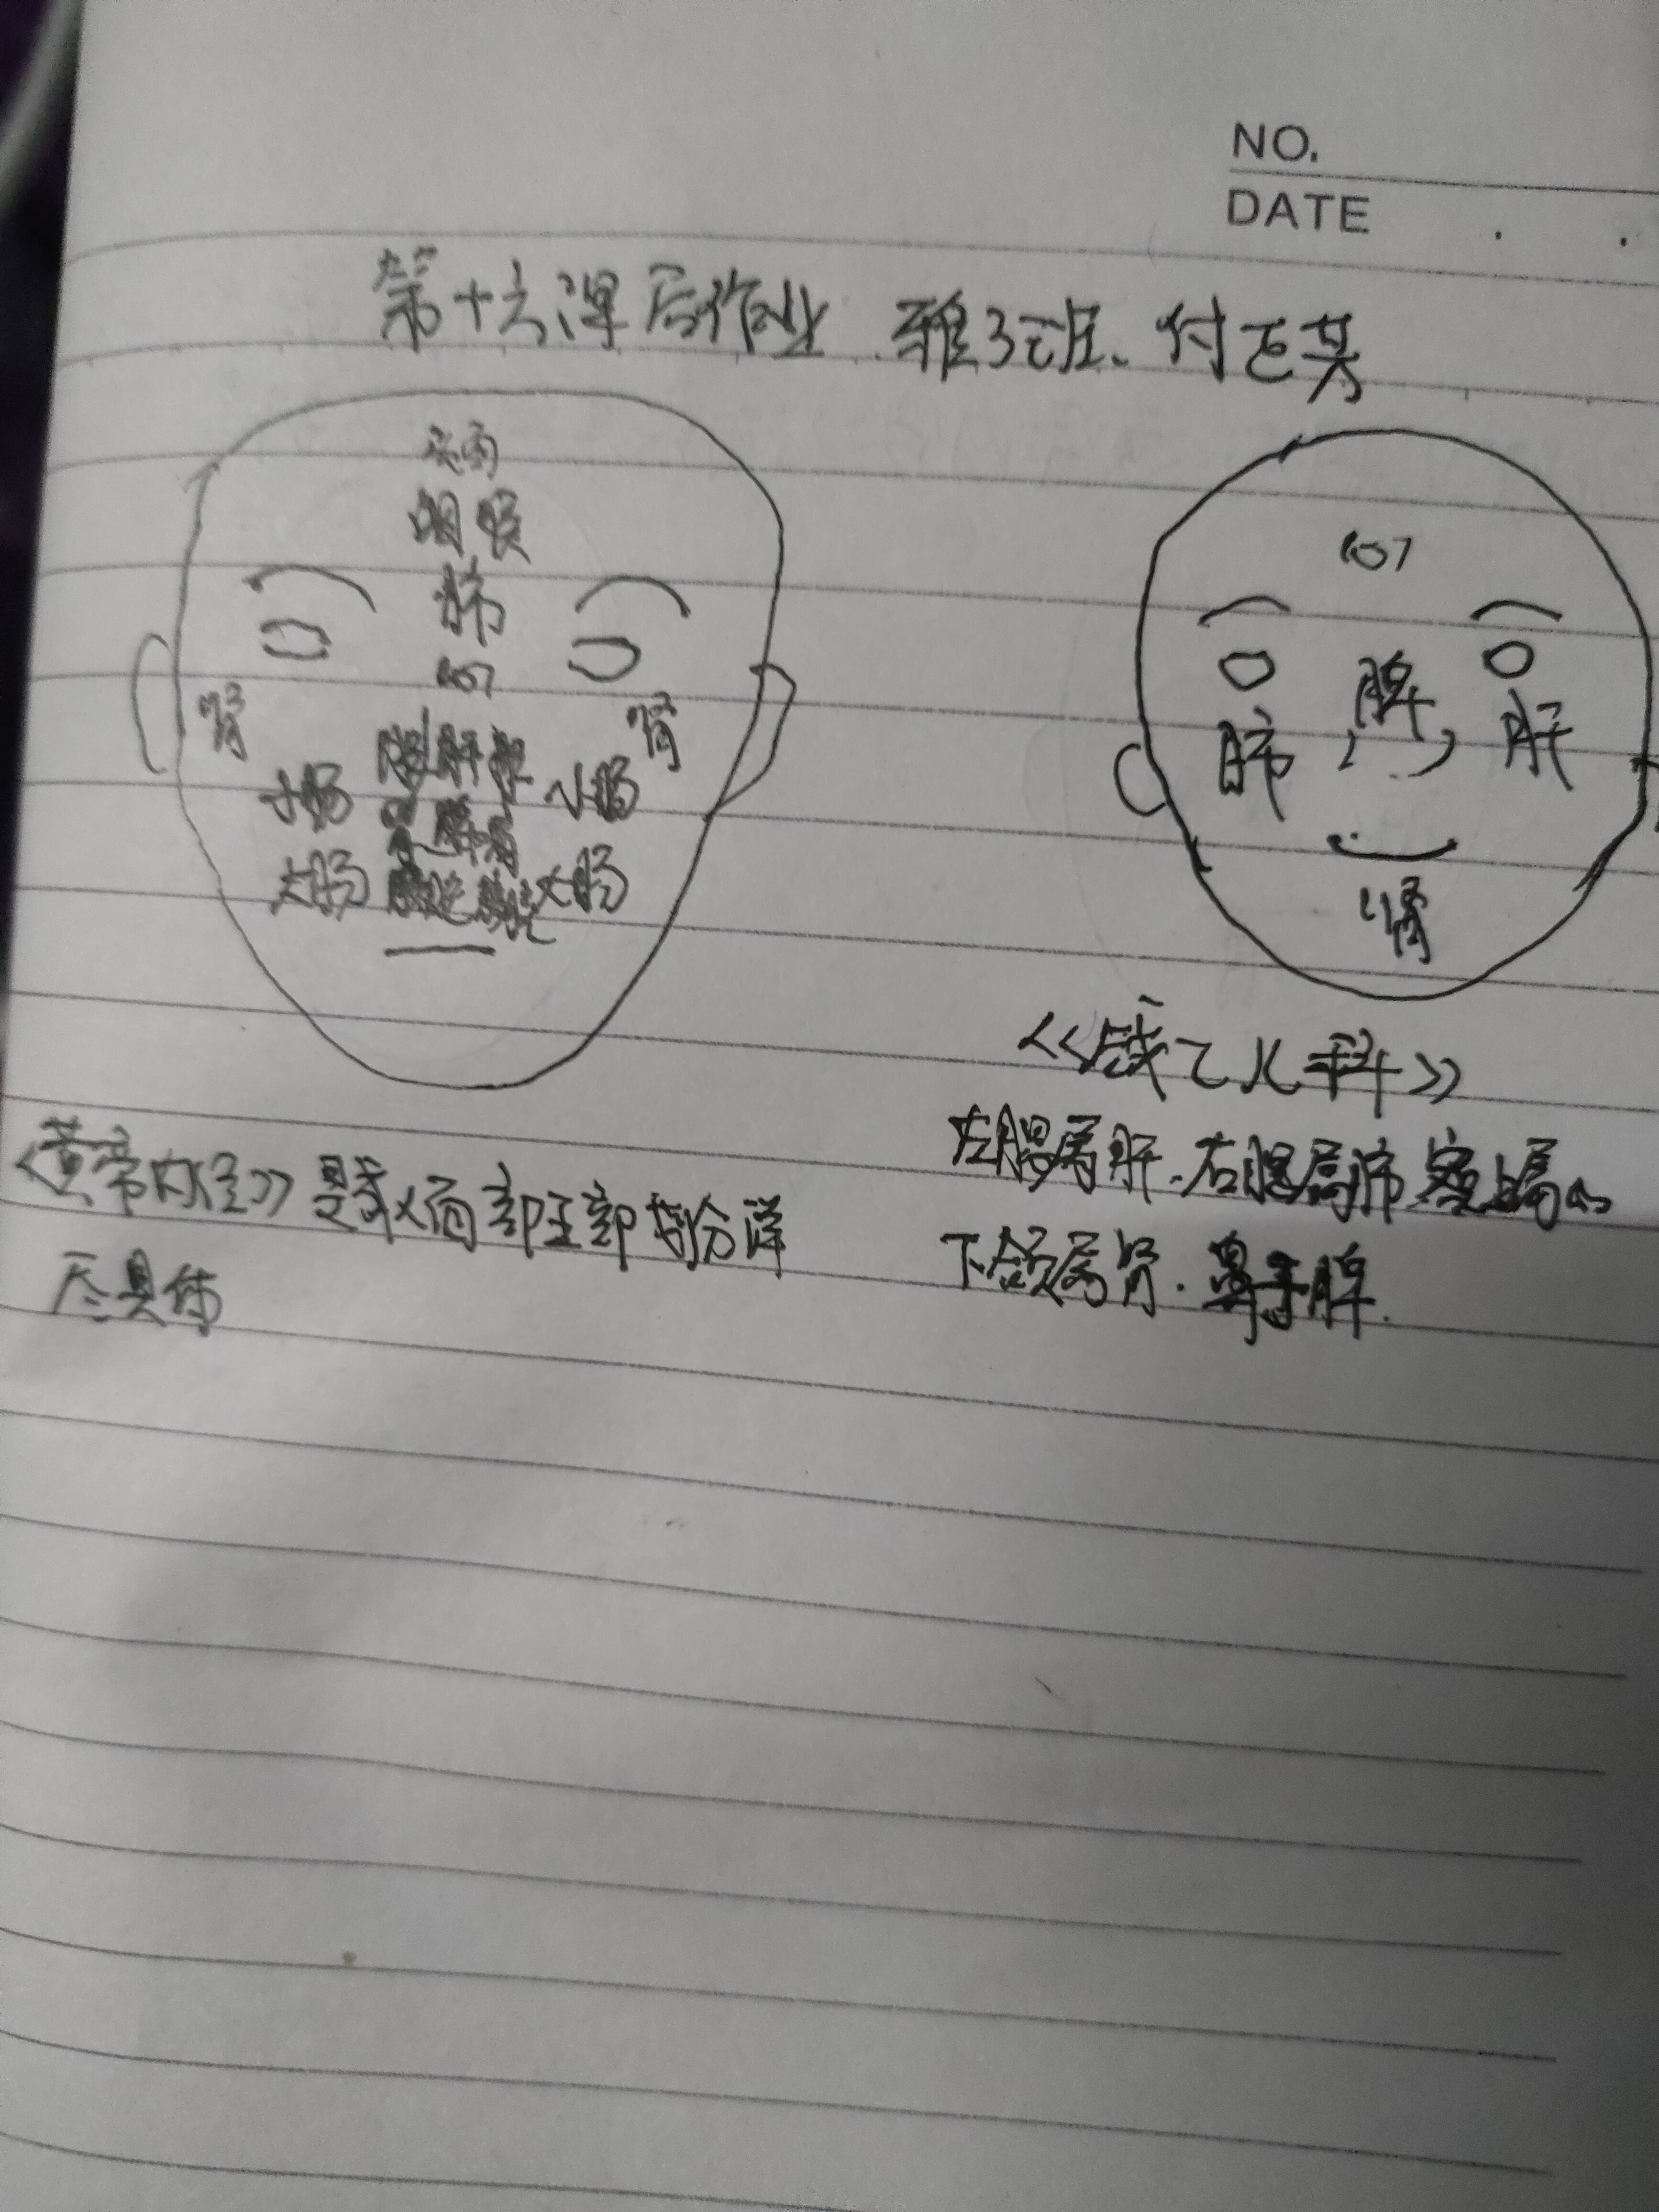 NO.
DATE
第十六课后作业 雅3班、付
头面
咽喉
肺
心
肾 肾
胆 肝 胆
小肠 小肠
胃 脾 胃
大肠 膀胱 大肠
心
脾
肺 肝
肾
《钱乙儿科》
左腮属肝.右腮属肺 额上属心
下颌属肾.鼻子脾.
《黄帝内经》是 面部 部 分详
尽具体